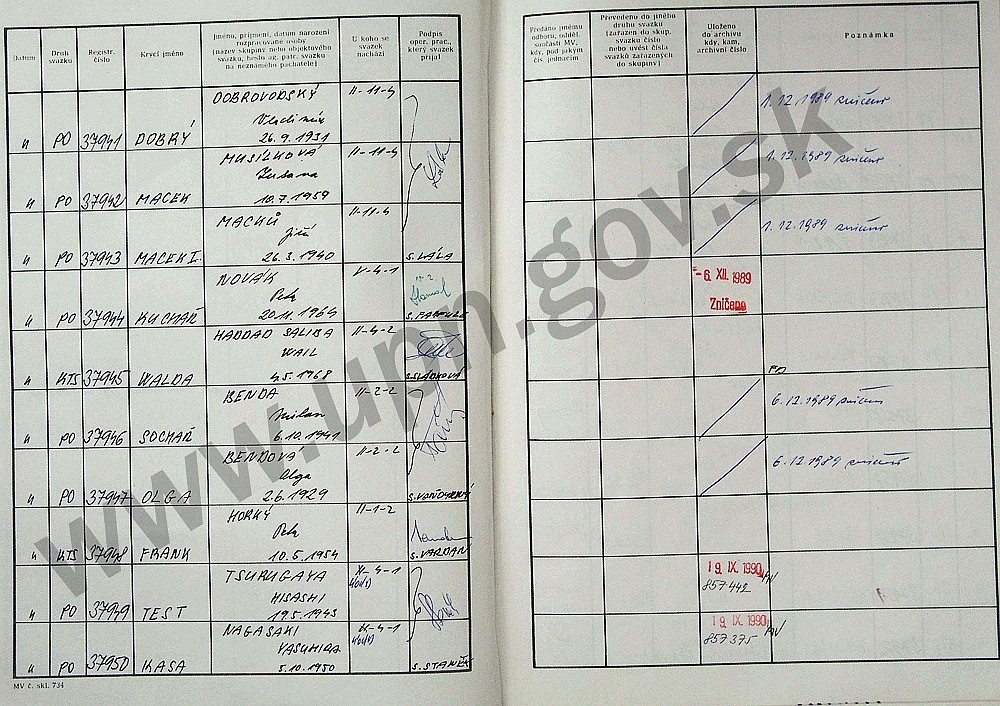 Datum
Druh svazku
Registr. číslo
Krycí jméno
Jméno, příjmení, datum narození
rozpracované osoby
[název skupiny nebo objektového
svazku, heslo ag. pátr. svazku
na neznámého pachatele]
U koho se
svazek
nachází
Podpis
oper. prac.,
který svazek
přijal
Předáno jinému
odboru, odděl.
součásti MV,
kdy, pod jakým
čís. jednacím
Převedeno do jiného
druhu svazku
[zařazen do skup.
svazku číslo
nebo uvést čísla
svazků zařazených
do skupiny]
Uloženo
do archivu
kdy, kam,
archivní číslo
Poznámka
DOBROVODSKÝ II-11-4
Vladimír
" PO 37941 DOBRÝ 26.9.1931
1.12.1989 zničeno
MUSÍLKOVÁ II-11-4
Zuzana
" PO 37942 MACEK 10.7.1959
1.12.1989 zničeno
MACKŮ II-11-4
Jiří
" PO 37943 MACEK I. 26.3.1940 S. LÁLA
1.12.1989 zničeno
NOVÁK V-4-1
Petr
" PO 37944 KUCHAŘ 20.11.1964
- 6. XII. 1989
Zničeno
HADDAD SALIBA II-4-2
WAIL
" KTS 37945 WALDA 4.5.1968 S. SLÁDKOVÁ
BENDA II-2-2
Milan
" PO 37946 SOCHAŘ 6.10.1941
6.12.1989 zničeno
BENDOVÁ II-2-2
Olga
" PO 37947 OLGA 2.6.1929
6.12.1989 zničeno
HORKÝ II-1-2
Petr
" KTS 37948 FRANK 10.5.1954 S. VARDAN
TSURUGAYA
HISASHI
" PO 37949 TEST 19.5.1943
19. IX. 1990
857442
NAGASAKI
YASUHIRA
" PO 37950 KASA 5.10.1950 S. STANĚK
19. IX. 1990
857375
MV č. skl. 734
www.upn.gov.sk